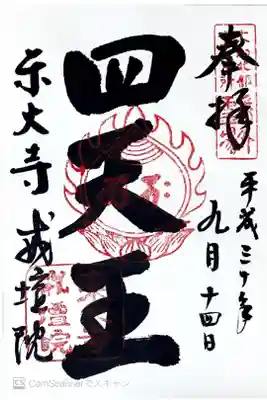 奉拝
平成三十年
九月十四日
四天王
東大寺 戒壇院
戒壇院
CS CamScannerでスキャン